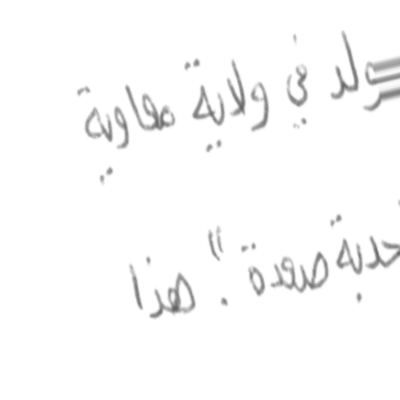 ولد في ولاية معاوية
صعدة". هذا